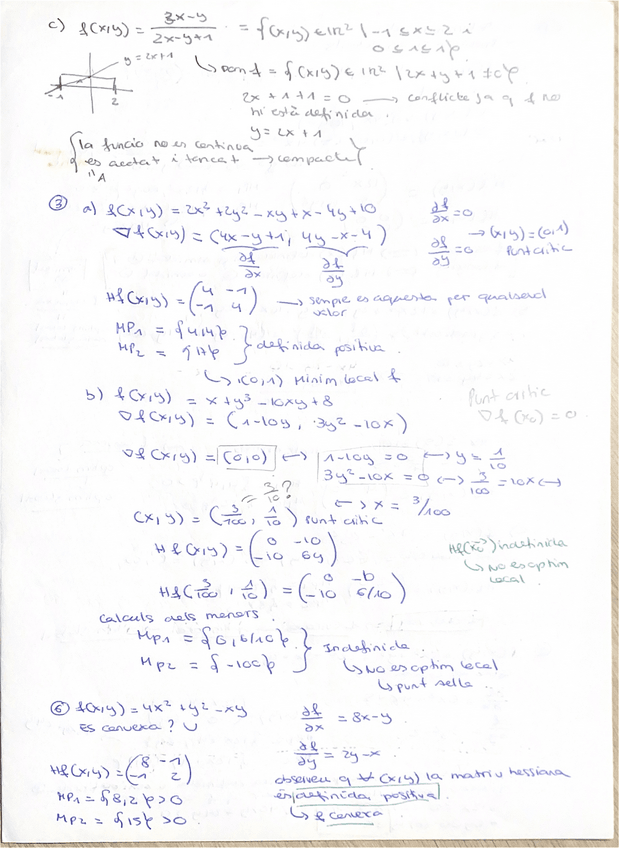 c) f(x,y) = (3x-y)/(2x-y+1) = {(x,y) ∈ IR² | -1 ≤ x ≤ 2 i
0 ≤ 1 ≤ 1}
y = 2x+1
-1 2
↳ Dom f = {(x,y) ∈ IR² | 2x+y+1 ≠ 0}
2x+1+1 = 0 → conflicte ja q f no
hi està definida.
y = 2x+1
la funció no es continua
es acotat i tancat → compacte
"A
③ a) f(x,y) = 2x²+2y²-xy+x-4y+10
∂f/∂x = 0
∇f(x,y) = (4x-y+1, 4y-x-4)
∂f/∂y = 0 → (x,y) = (0,1)
Punt crític
∂f/∂x ∂f/∂y
Hf(x,y) = (4 -1
-1 4) → sempre es aquesta per qualsevol
valor
MP1 = {4,4}
MP2 = {15} definida positiva.
↳ (0,1) Mínim local f
b) f(x,y) = x+y³-10xy+8
Punt crític
∇f(x,y) = (1-10y, 3y²-10x)
∇f(x0) = 0
∇f(x,y) = (0,0) ↔ 1-10y = 0 ↔ y = 1/10
3y²-10x = 0 ↔ 3/100 = 10x ↔
= 3/10?
↔ x = 3/100
(x,y) = (3/100, 1/10) Punt crític
Hf(x,y) = (0 -10
-10 6y)
Hf(x0) indefinida
↳ No es optim
local
Hf(3/100, 1/10) = (0 -10
-10 6/10)
Calculs dels menors.
MP1 = {0, 6/10}
MP2 = {-100} Indefinida
↳ No es optim local
↳ punt sella
⑥ f(x,y) = 4x²+y²-xy
∂f/∂x = 8x-y
Es convexa? ∪
∂f/∂y = 2y-x
Hf(x,y) = (8 -1
-1 2)
observeu q ∀ (x,y) la matriu hessiana
és definida positiva.
MP1 = {8,2} > 0
↳ f convexa
MP2 = {15} > 0.